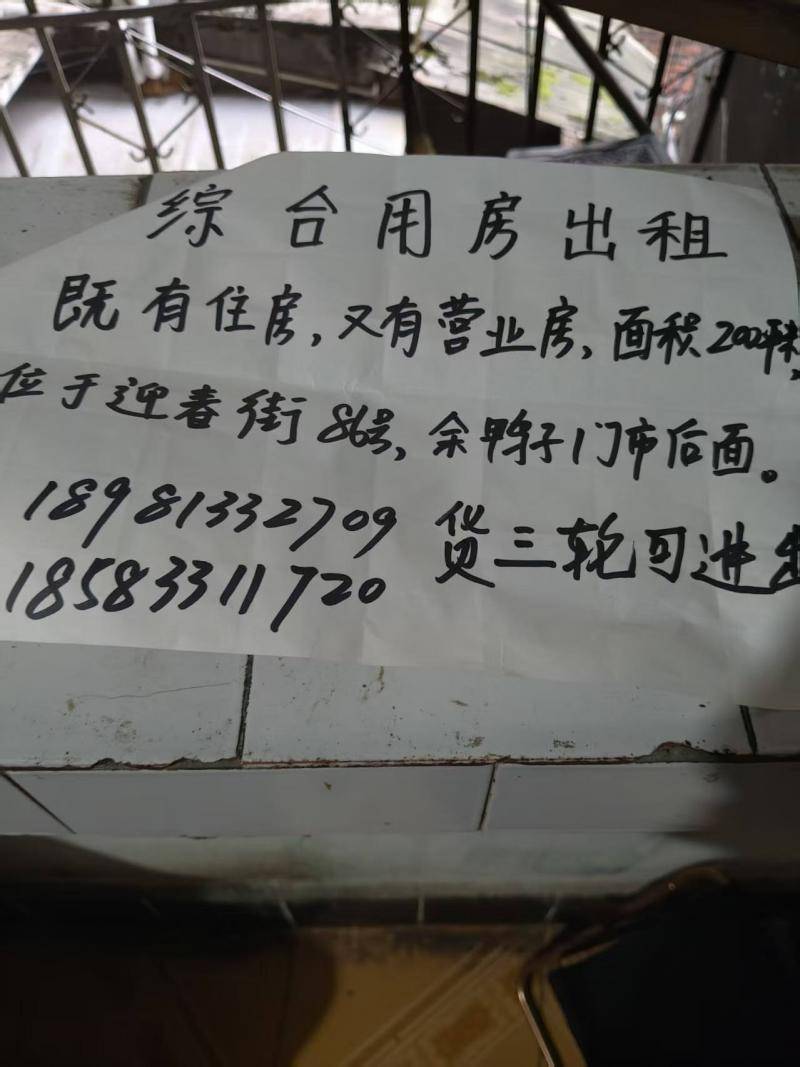 综合用房出租
既有住房,又有营业房,面积200平米,
位于迎春街86号,余鸭子门市后面。
18981332709
18583311720
货三轮可进出